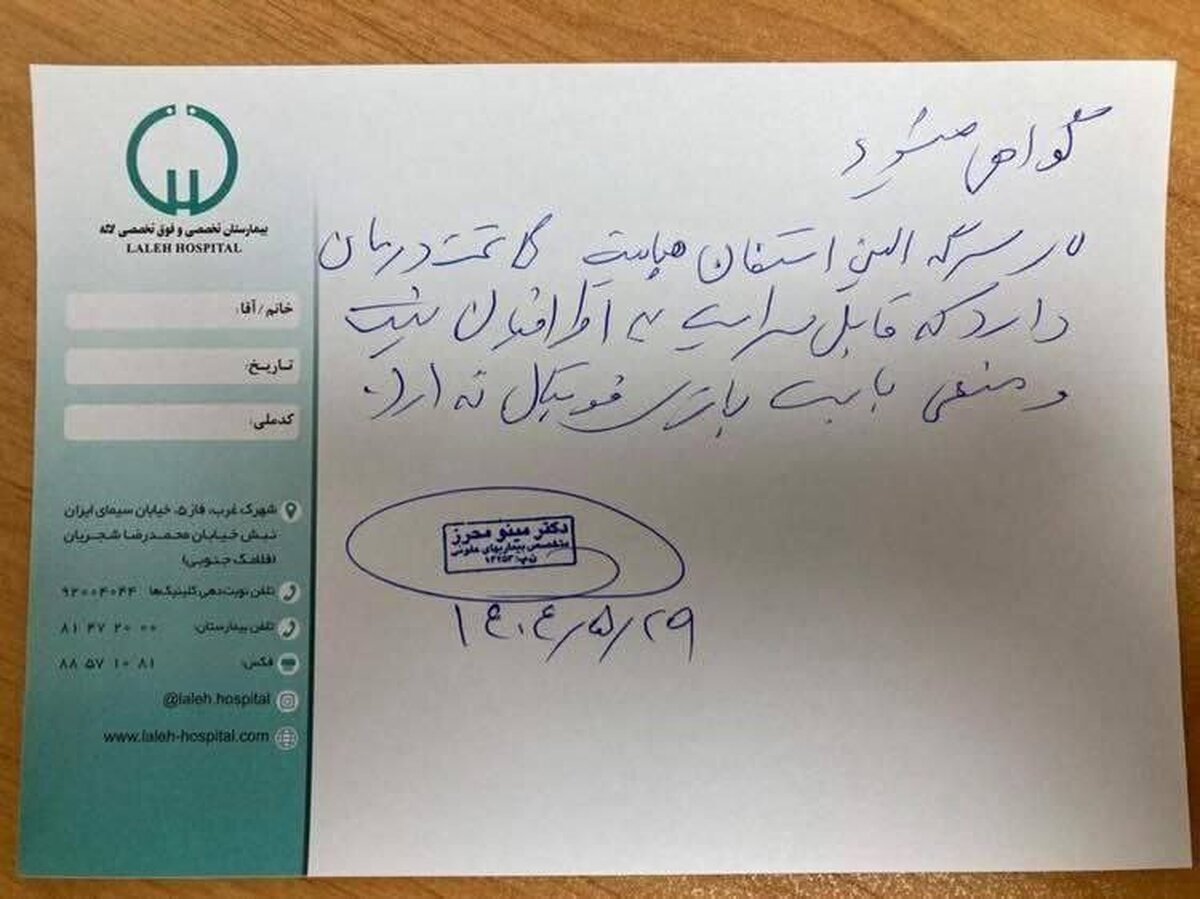 بیمارستان تخصصی و فوق تخصصی لاله
LALEH HOSPITAL
خانم / آقا:
تاریخ:
کدملی:
شهرک غرب، فاز ۵، خیابان سیمای ایران
نبش خیابان محمدرضا شجریان
(فلامک جنوبی)
تلفن نوبت‌دهی کلینیک‌ها ۹۲۰۰۴۰۴۴
تلفن بیمارستان: ۸۱ ۴۷ ۲۰ ۰۰
فکس: ۸۸ ۵۷ ۱۰ ۸۱
@laleh.hospital
www.laleh-hospital.com
گواهی میشود
سرگه الین استفان هپاتیت تحت درمان
دارد که قابل سرایت به اطرافیان نیست
و منعی بابت بازی فوتبال ندارد.
دکتر مینو محرز
متخصص بیماریهای عفونی
ن‌پ: ۱۴۲۵۳
۱۴۰۴/۵/۲۹